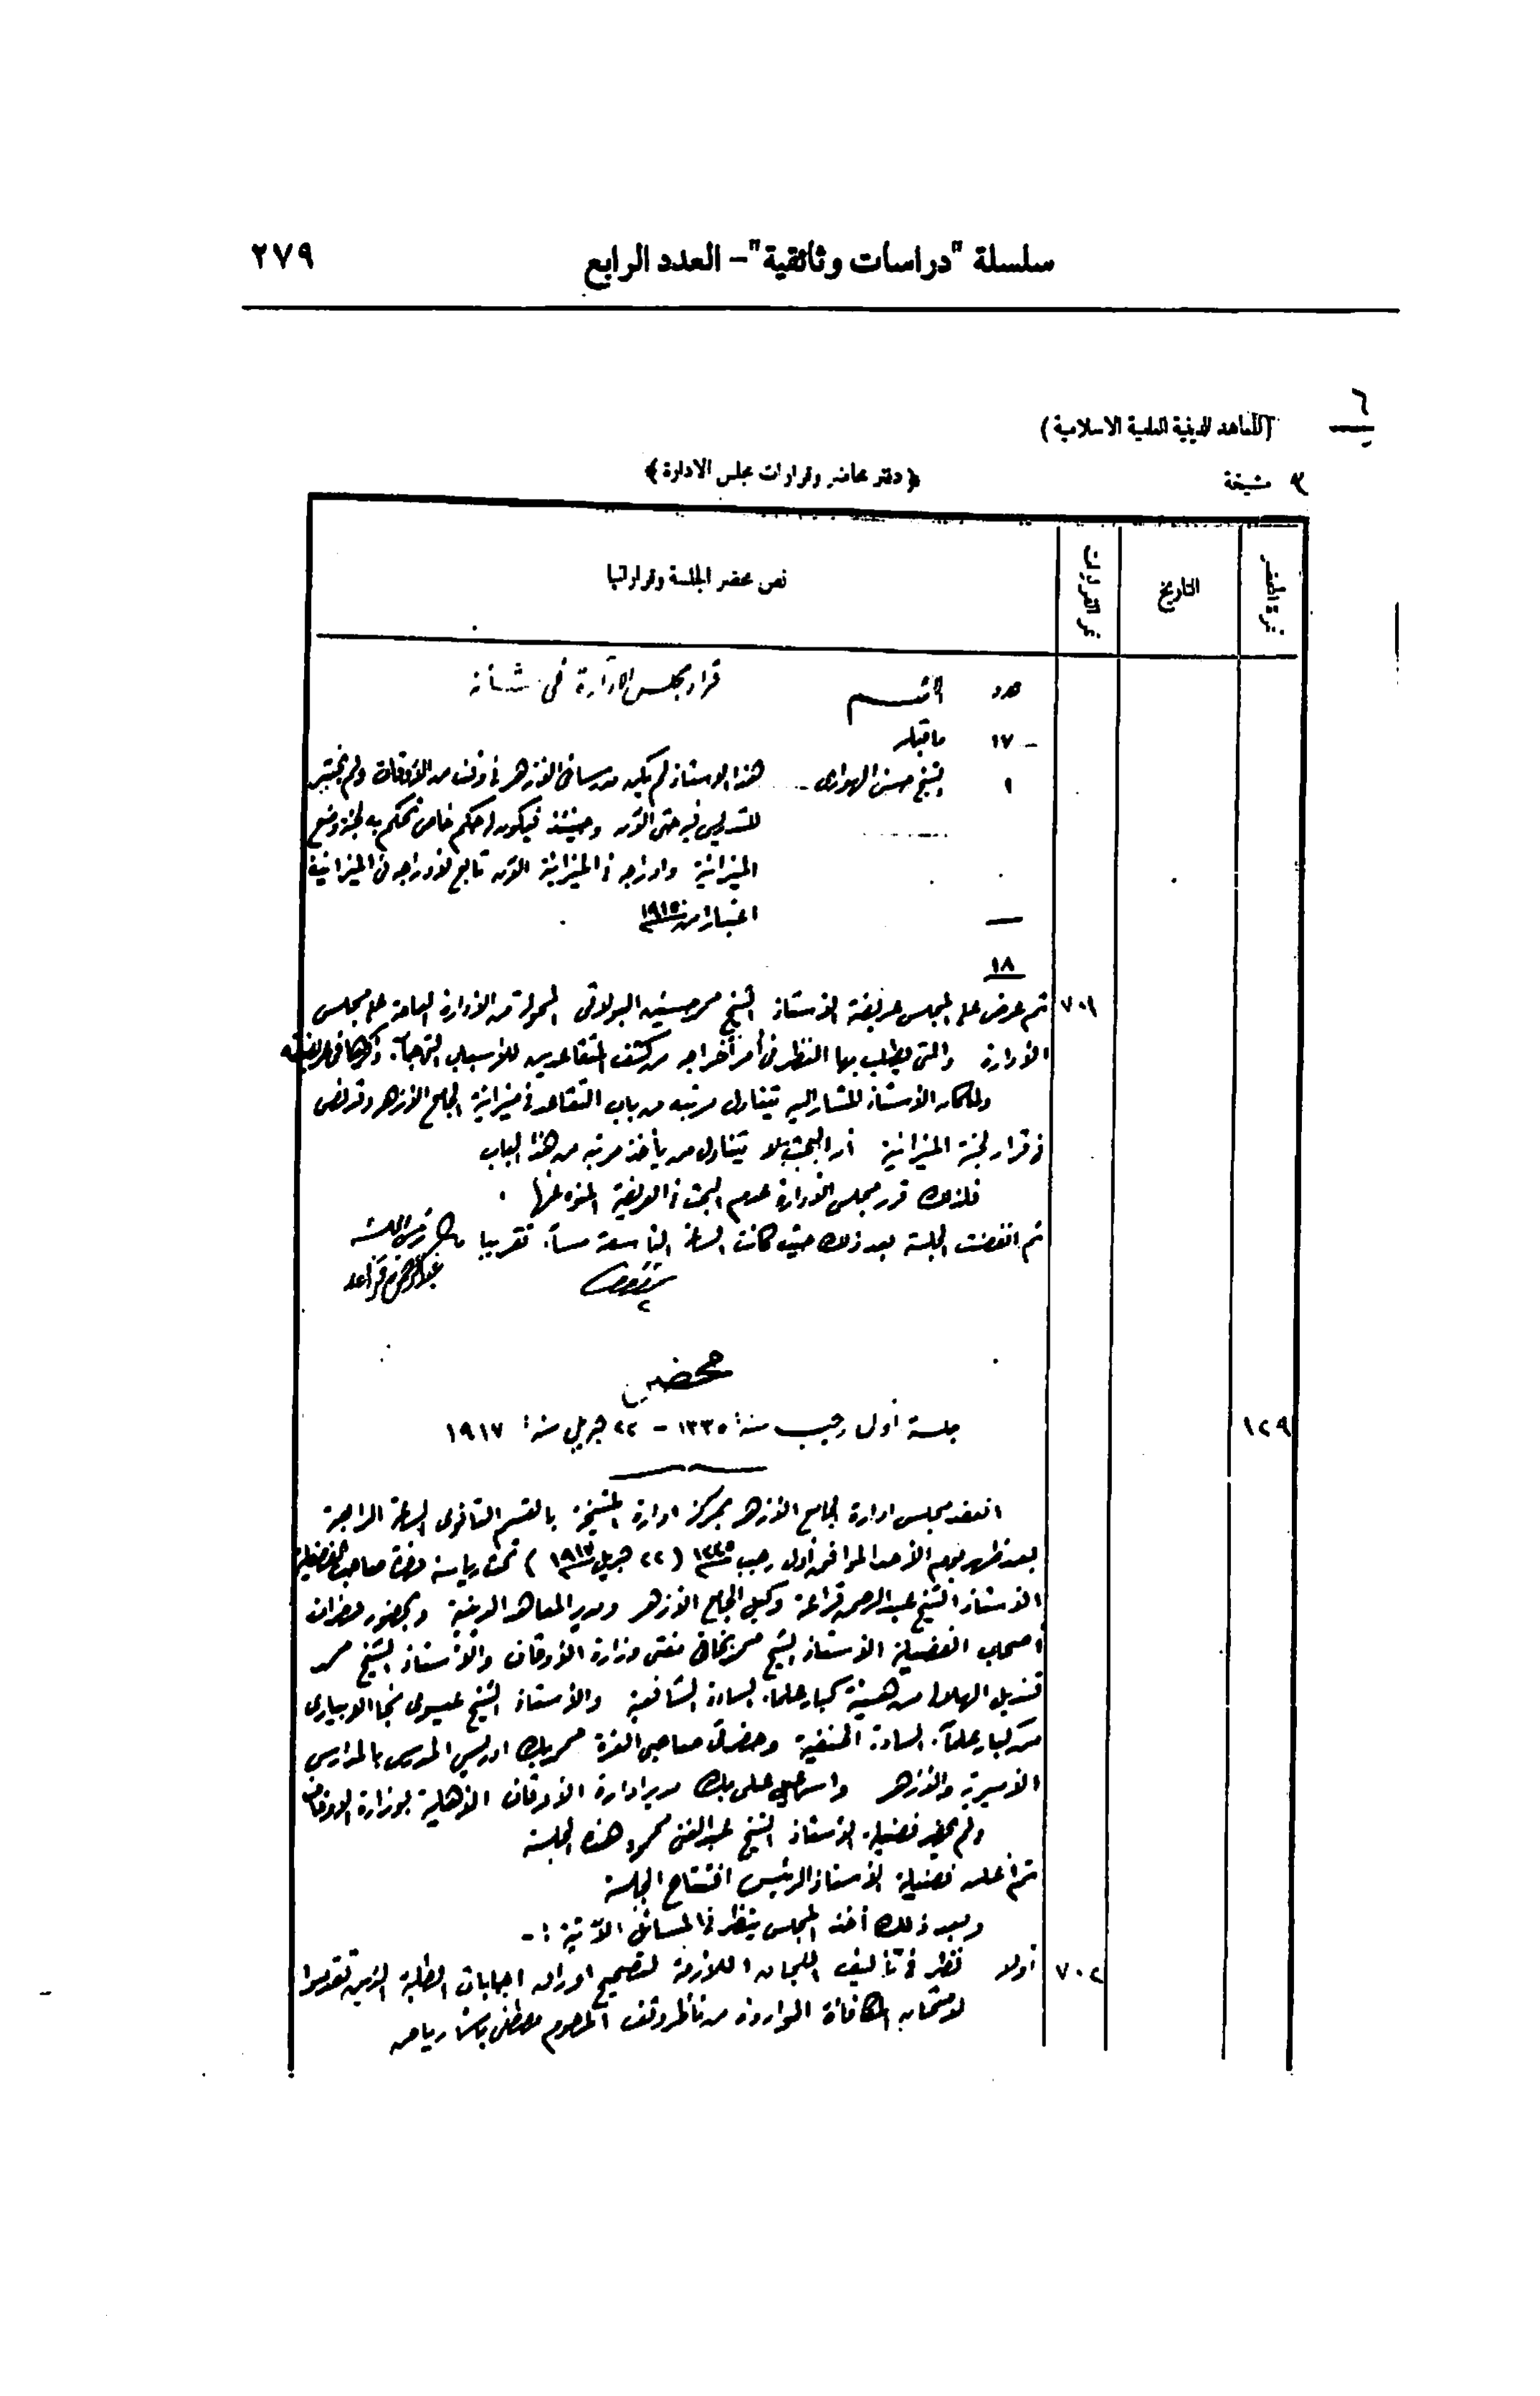 سلسلة "دراسات وثائقية" - العدد الرابع ٢٧٩
٦
(المعاهد الدينية العلمية الاسلامية)
٣ مشيخة
﴿دفتر محاضر وقرارات مجلس الادارة﴾
نمرة المحضر
التاريخ
نمر القرارات
نص محضر الجلسة وقراراتها
عدد الاسم قرار مجلس الادارة في شأنه
١٧ ماقبله
١ الشيخ حسن الهوارى هذا الاستاذ لم يكن مدرسا فى الازهر فى وقت من الأوقات ولم يختبر
للتدريس فيه حتى الآن وحينئذ فيكون له حكم خاص تحكم به لجنة وضع
الميزانية وادراجه فى الميزانية الآن تابع لادراجه فى الميزانية
اعتبارا من سنة ١٩١٥
١٨
٧٠١ ثم عرض على المجلس عريضة الاستاذ الشيخ محمد حسنين البولاقى المحولة من الادارة العامة على مجلس
الادارة والتى يطلب بها النظر فى أمر اخراجه من كشف المتقاعدين للأسباب التى جاء ذكرها فى عريضته
ولما كان الاستاذ المشار اليه يتناول مرتبه من باب التقاعد فى ميزانية الجامع الازهر وقد نص
فى قرار لجنة الميزانية أن البحث لا يتناول من يأخذ مرتبه من هذا الباب
فلذلك قرر مجلس الادارة عدم البحث فى العريضة المنوه عنها .
ثم انفضت الجلسة بعد ذلك حيث كانت الساعة التاسعة مساء تقريبا رئيس الجلسة
عبد الرحمن قراعه
محضر
١٢٩ جلسة أول رجب سنة ١٣٣٥ - ٢٢ ابريل سنة ١٩١٧
انعقد مجلس ادارة الجامع الازهر بمركز ادارة المشيخة بالقسم الثانوى الساعة الرابعة
بعد ظهر يوم الأحد الموافق أول رجب سنة ١٣٣٥ (٢٢ ابريل سنة ١٩١٧) تحت رياسة حضرة صاحب الفضيلة
الاستاذ الشيخ عبد الرحمن قراعة وكيل الجامع الازهر ومدير المعاهد الدينية وبحضور حضرات
أصحاب الفضيلة الاستاذ الشيخ محمد بخاتى مفتى وزارة الأوقاف والأستاذ الشيخ محمد
قنديل الهلالى من هيئة كبار علماء السادة الشافعية والأستاذ الشيخ عيسوى نجا الابيارى
من كبار علماء السادة الحنفية وحضرتى صاحبى العزة محمد بك ادريس المدرس بالمدارس
الاميرية والازهر واسماعيل على بك مدير ادارة الأوقاف الأهلية بوزارة الاوقاف
ولم يحضر فضيلة الأستاذ الشيخ عبد الغنى محمود هذه الجلسة
ثم أعلن فضيلة الأستاذ الرئيس افتتاح الجلسة
وبعد ذلك أخذ المجلس ينظر فى المسائل الآتية :-
٧٠٢ أولا نظر فى تأليف اللجان اللازمة لتصحيح اوراق اجابات الطلبة الذين تقدموا
لامتحان المكافأة الواردة من ناظر وقف المرحوم مصطفى باشا رياض